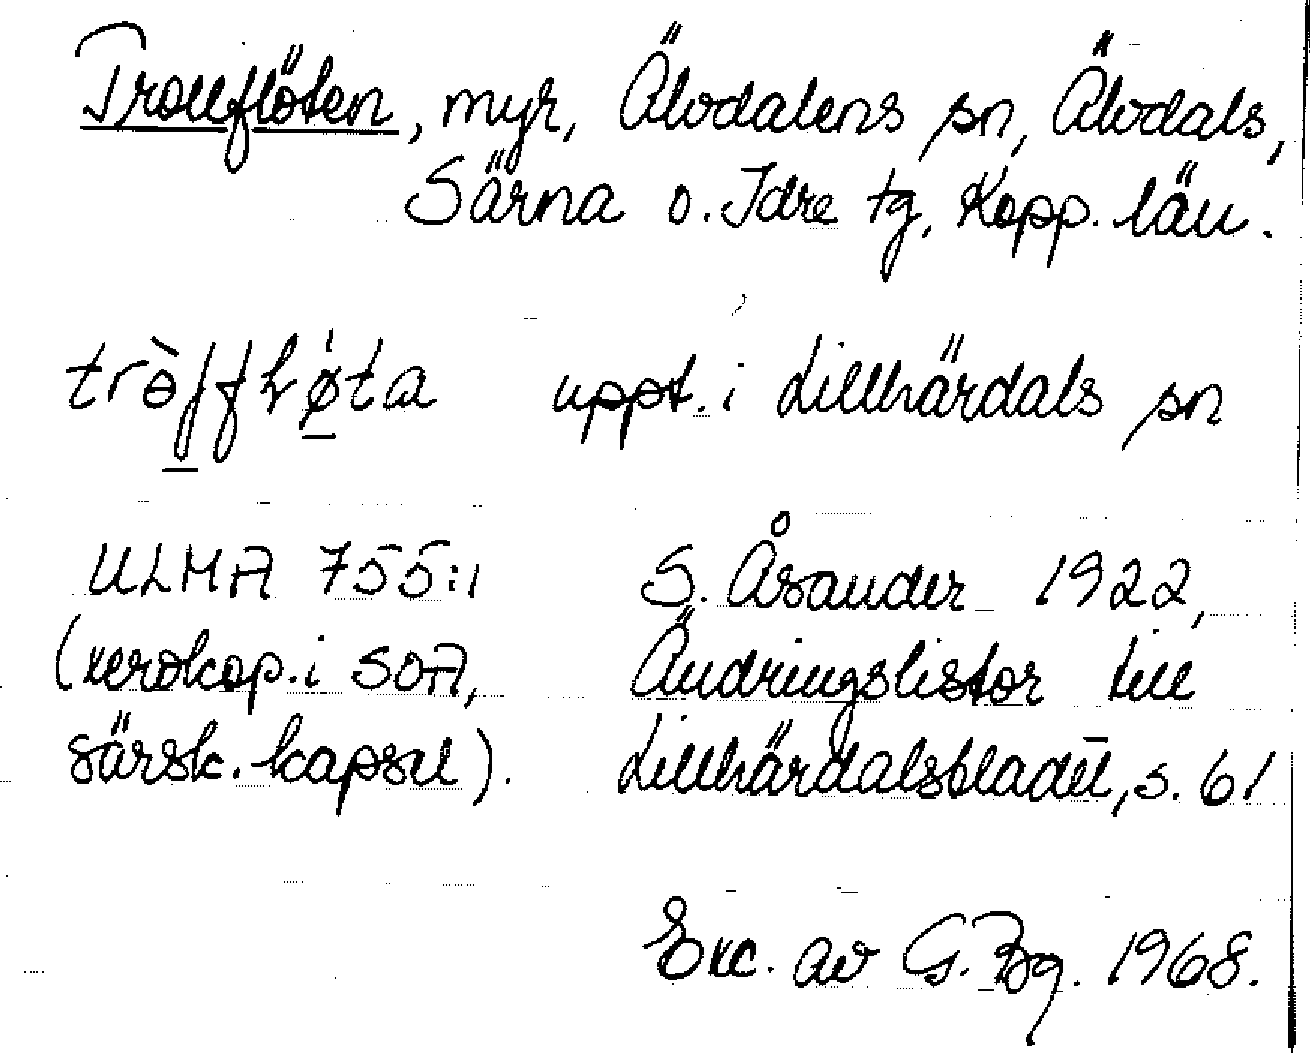 Trollflöten, myr, Älvdalens sn, Älvdals,
Särna o. Idre tg, Kopp. län.
uppt. i Lillhärdals sn
ULMA 755:1 S. Åsander 1922,
(xerokop. i SOA, Ändringslistor till
särsk. kapsel). Lillhärdalsbladet, s. 61
Exc. av G. Bg. 1968.